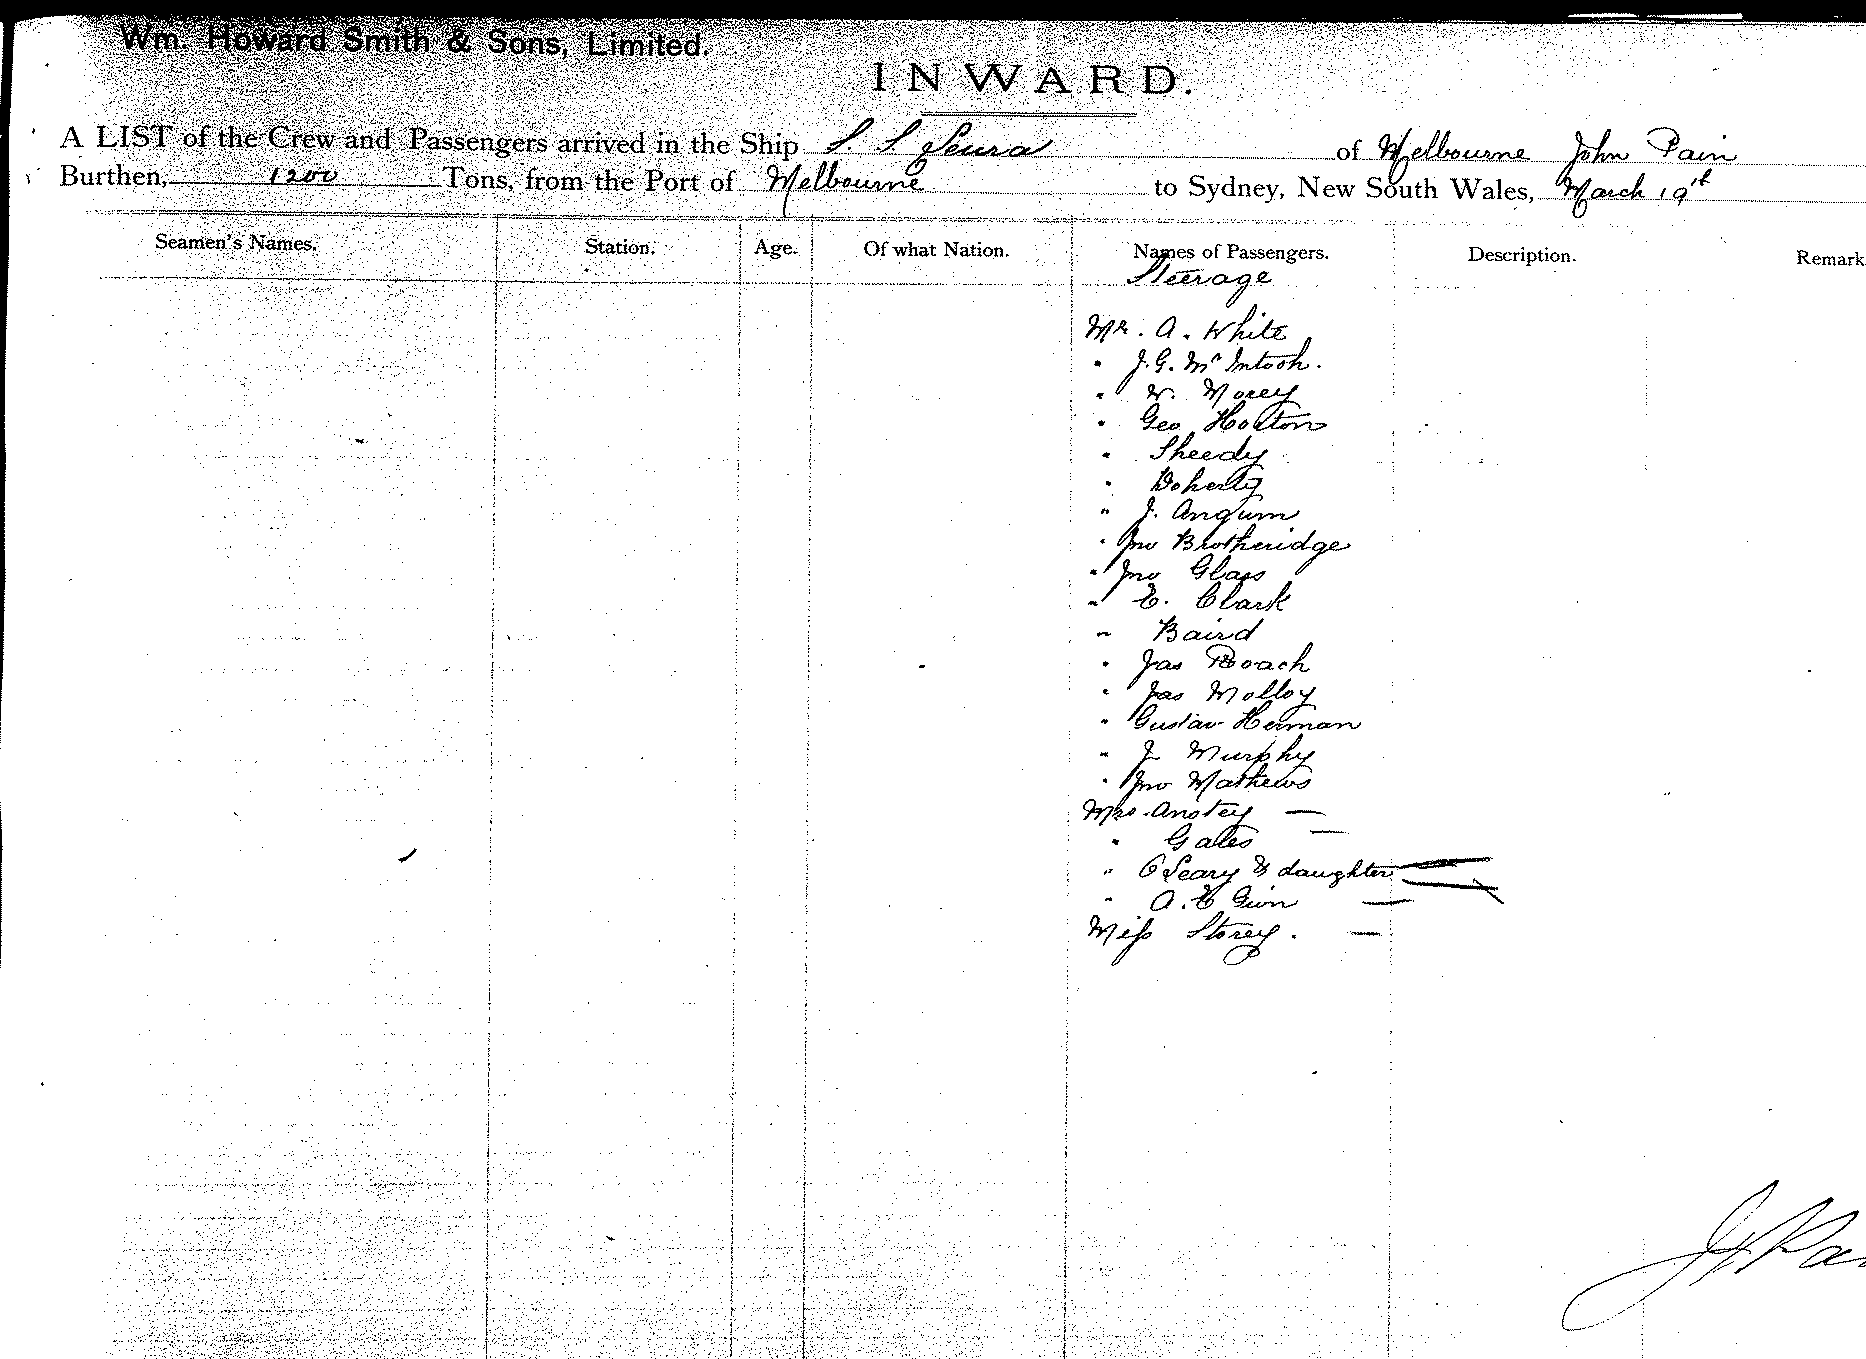 Wm. Howard Smith & Sons, Limited.
INWARD.
A LIST of the Crew and Passengers arrived in the Ship S. S Leura of Melbourne John Pain
Burthen, 1200 Tons, from the Port of Melbourne to Sydney, New South Wales, March 19th
Seamen's Names. Station. Age. Of what Nation. Names of Passengers. Description. Remark
Steerage
Mr. A. White
" J. G. McIntosh.
" W. Morey
" Geo Horton
" Sheedy
" Doherty
" J. Angum
" Jno Brotheridge
" Jno Glass
" E. Clark
" Baird
" Jas Roach
" Jas Molloy
" Gustav Herman
" J Murphy
" Jno Mathews
Mrs. Anstey —
" Gates —
" O'Leary & daughter
" A. E Gunn —
Miss Storey. —